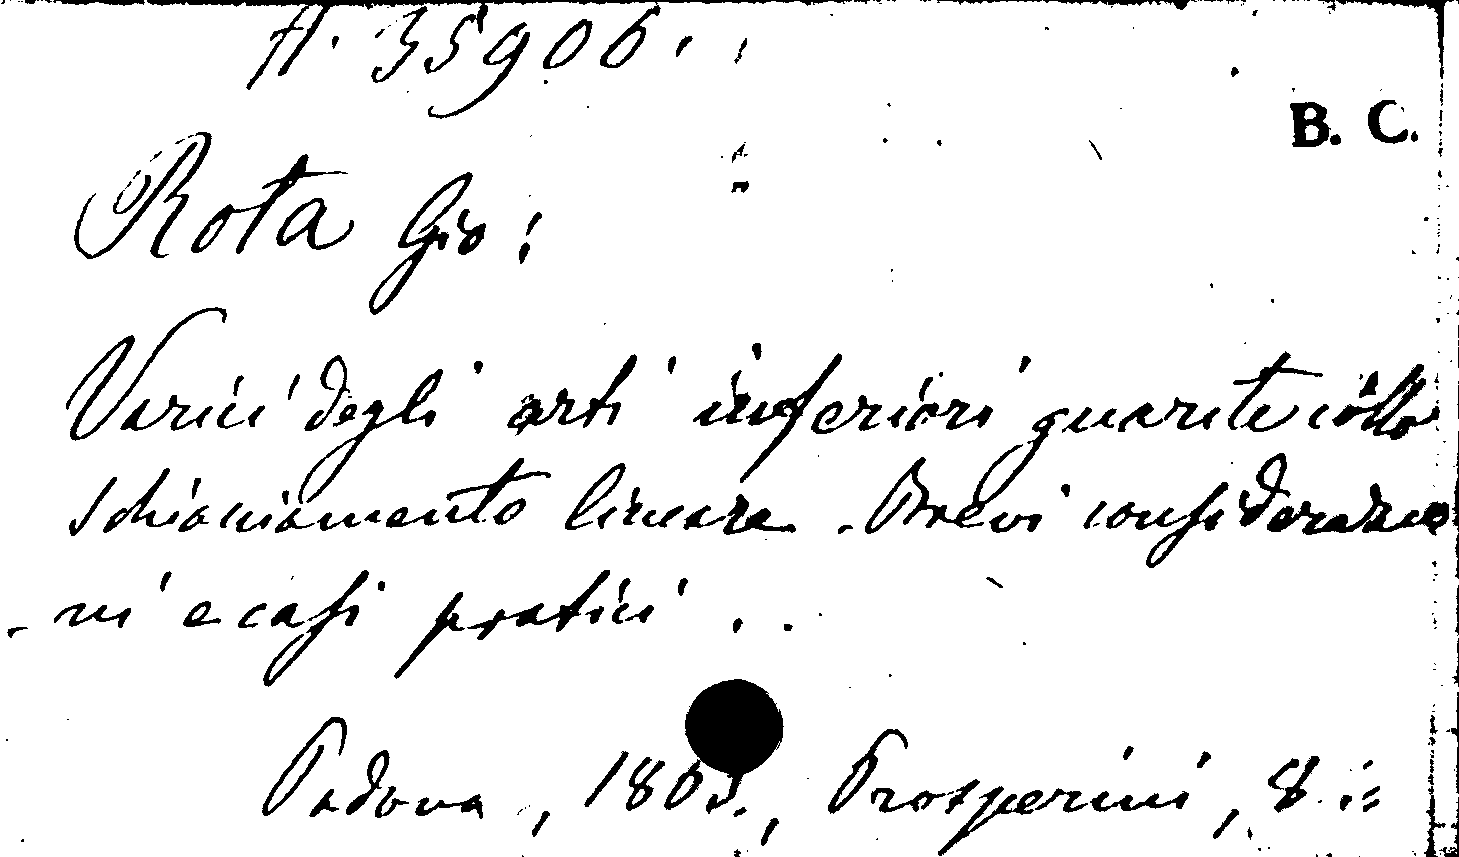 A. 35906.
B. C.
Rota Gio:
Varici degli arti inferiori guarite collo
schiacciamento lineare. Brevi considerazio
-ni e casi pratici..
Padova, 1863., Prosperini, 8